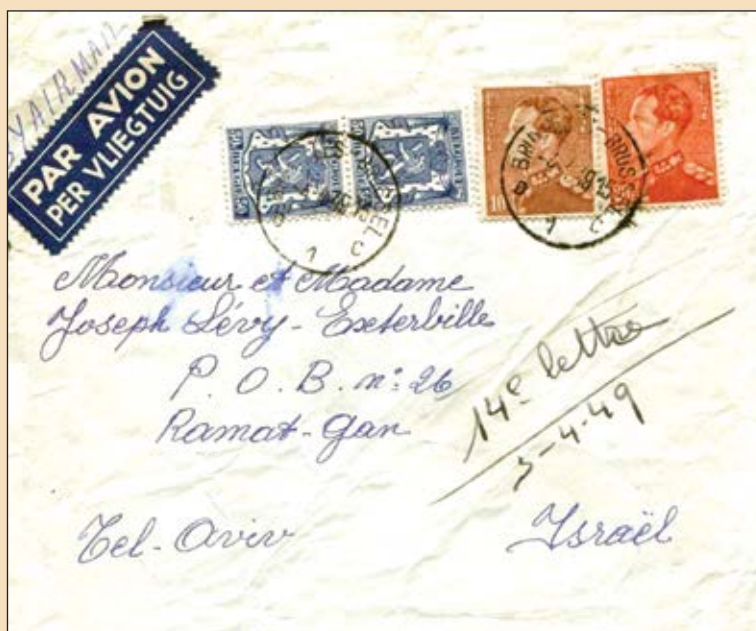 BY AIRMAIL
PAR AVION
PER VLIEGTUIG
10
Monsieur et Madame
Joseph Lévy-Exterbille
P. O. B. n° 26
Ramat-Gan
14e lettre
3-4-49
Tel-Aviv Israël